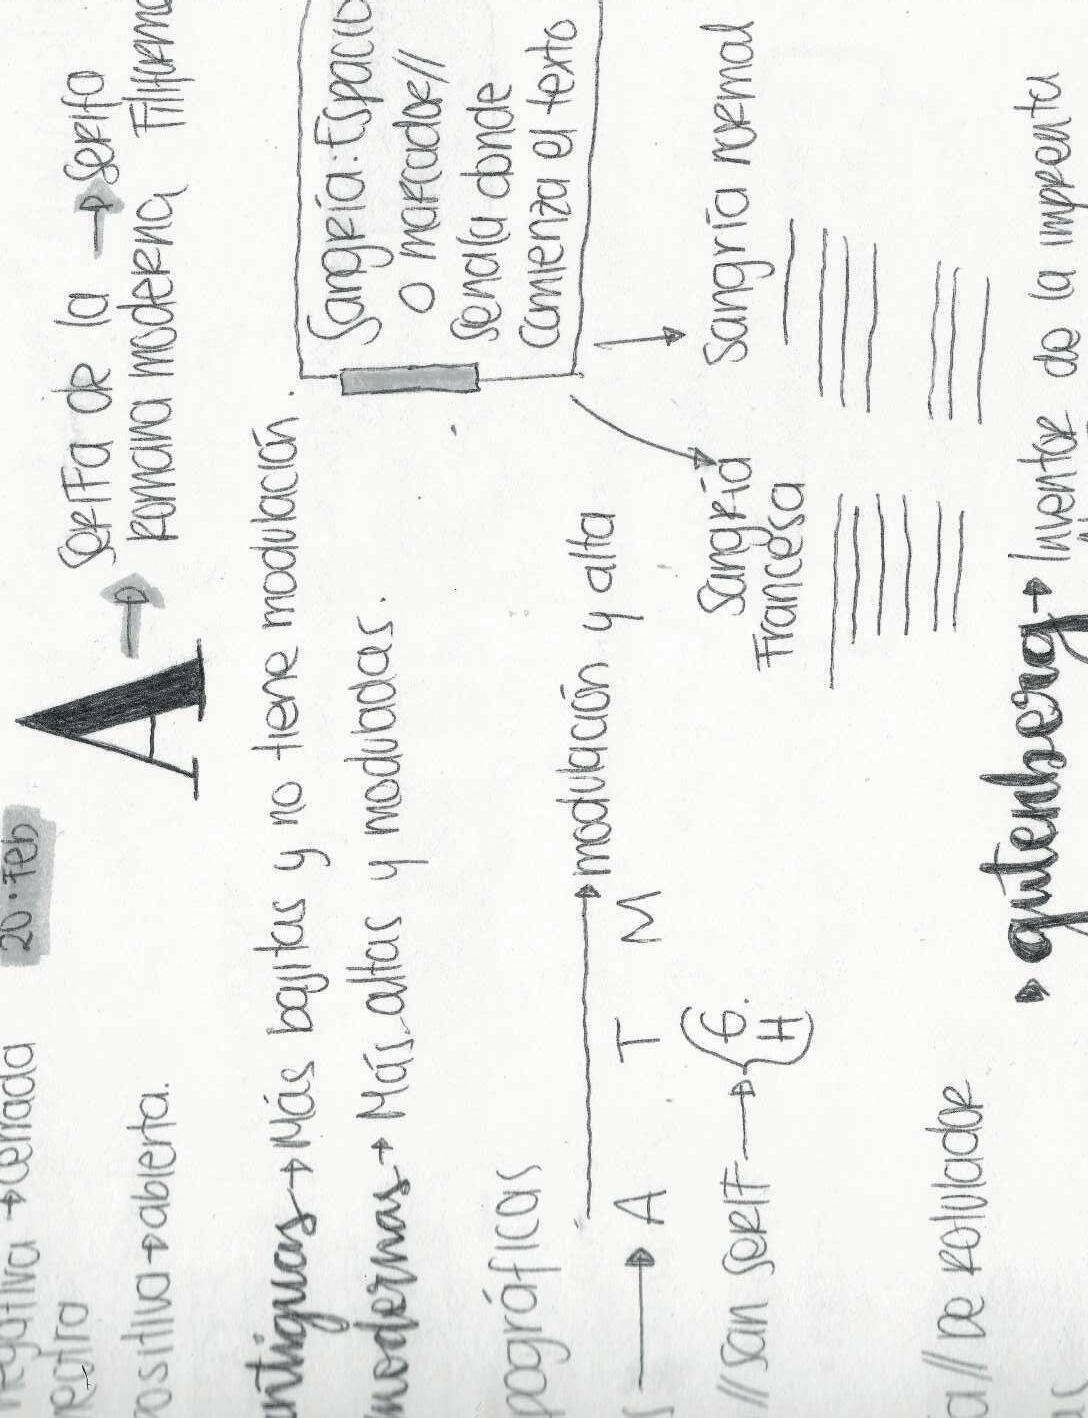 20·Feb
negativa → cerrada
neutra
positiva → abierta.
A → Seriffa de la → serifa
romana moderna, Filiforme
antiguas → Más bajitas y no tiene modulación.
modernas → Más altas y moduladas.
Sangría: Espacio
o marcador//
señala donde
comienza el texto
pográficas
modulación y alta
→ A T M
// san serif → G.
H
Sangría normal
Sangría
Francesa
a// De rotulador
gutenberg → Inventor de la imprenta